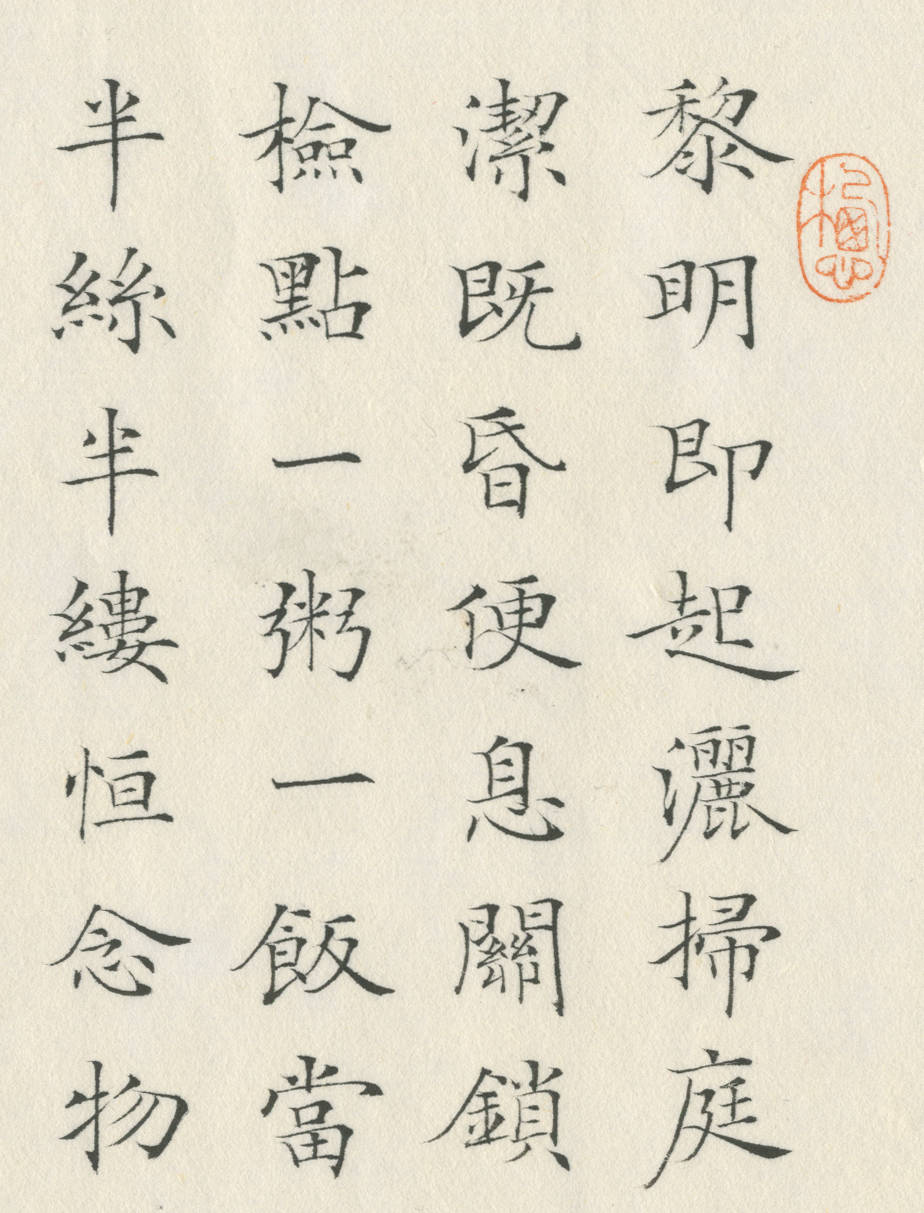 黎明即起灑掃庭
潔既昏便息關鎖
檢點一粥一飯當
半絲半縷恒念物